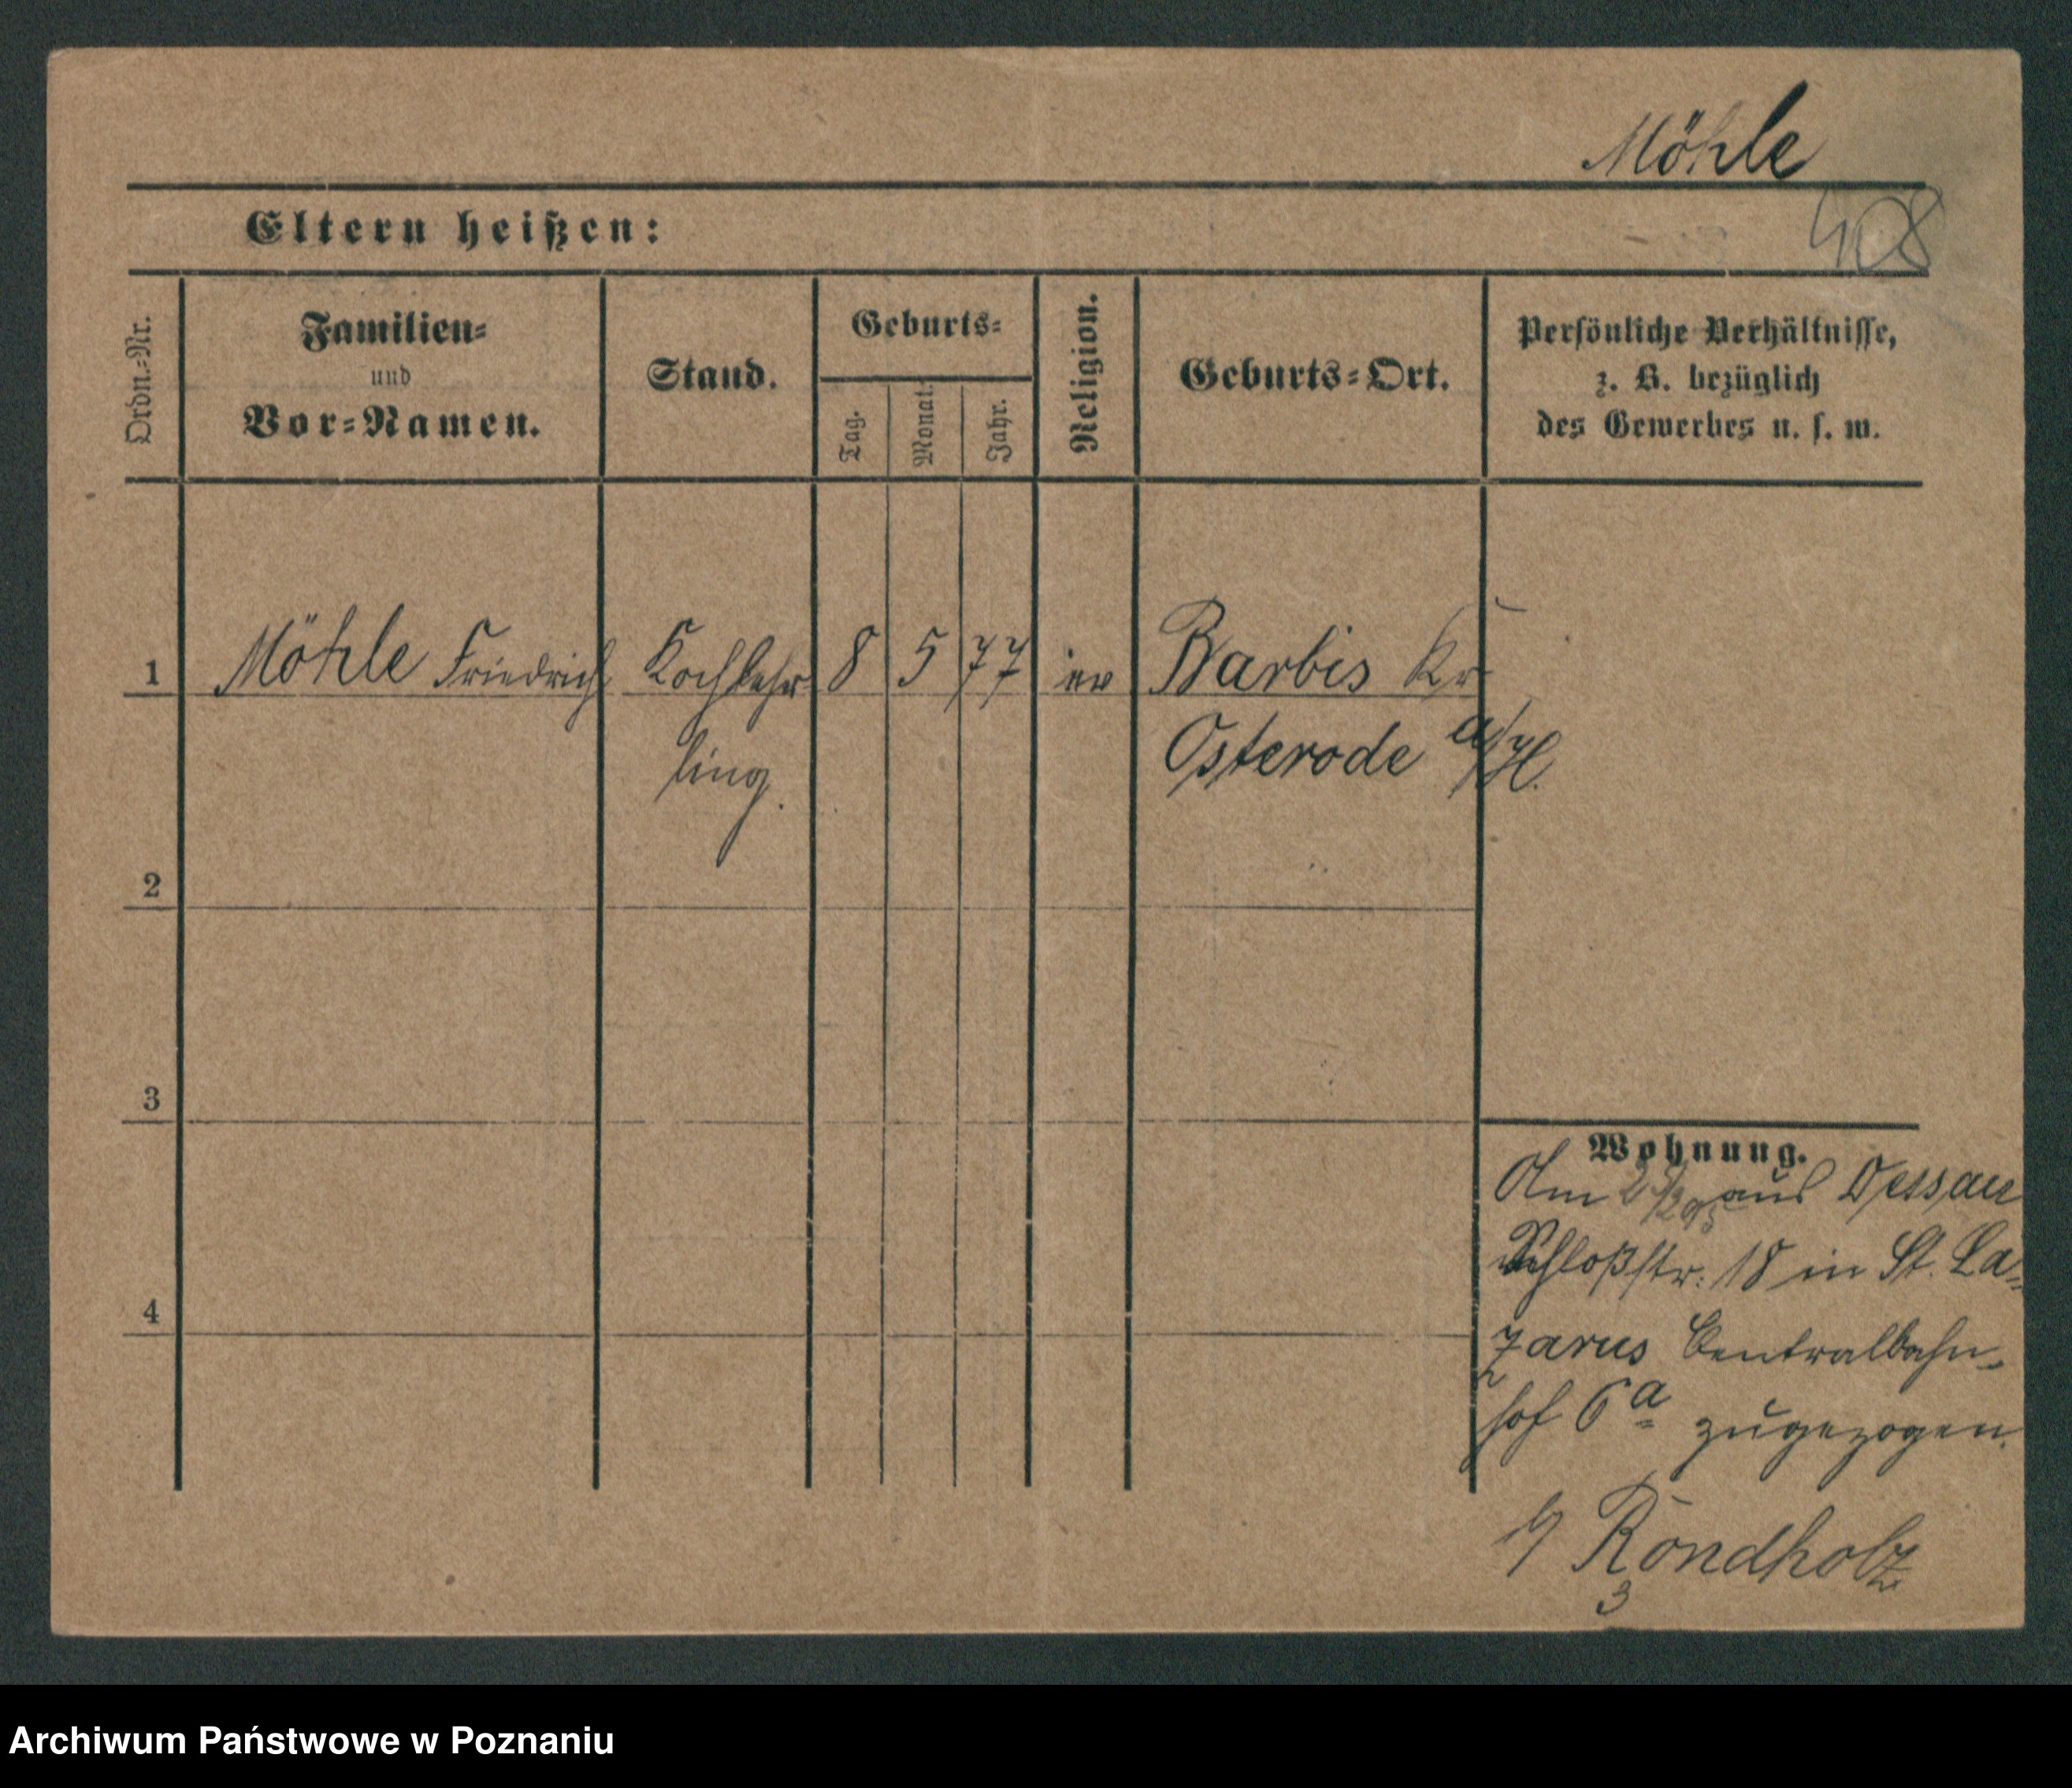 Möhle
Eltern heißen:
408
Ordn.=Nr.
Familien=
und
Vor=Namen.
Stand.
Geburts=
Tag.
Monat.
Jahr.
Religion.
Geburts=Ort.
Persönliche Verhältnisse,
z. B. bezüglich
des Gewerbes u. s. w.
1 Möhle Friedrich Kochlehr 8 5 77 ev Barbis Kr
ling. Osterode a/H.
2
3
4
Wohnung.
Am aus Dessau
Schloßstr. 18 in St. La=
zarus Centralbahn=
hof 6a zugezogen.
Rondholz
3
Archiwum Państwowe w Poznaniu